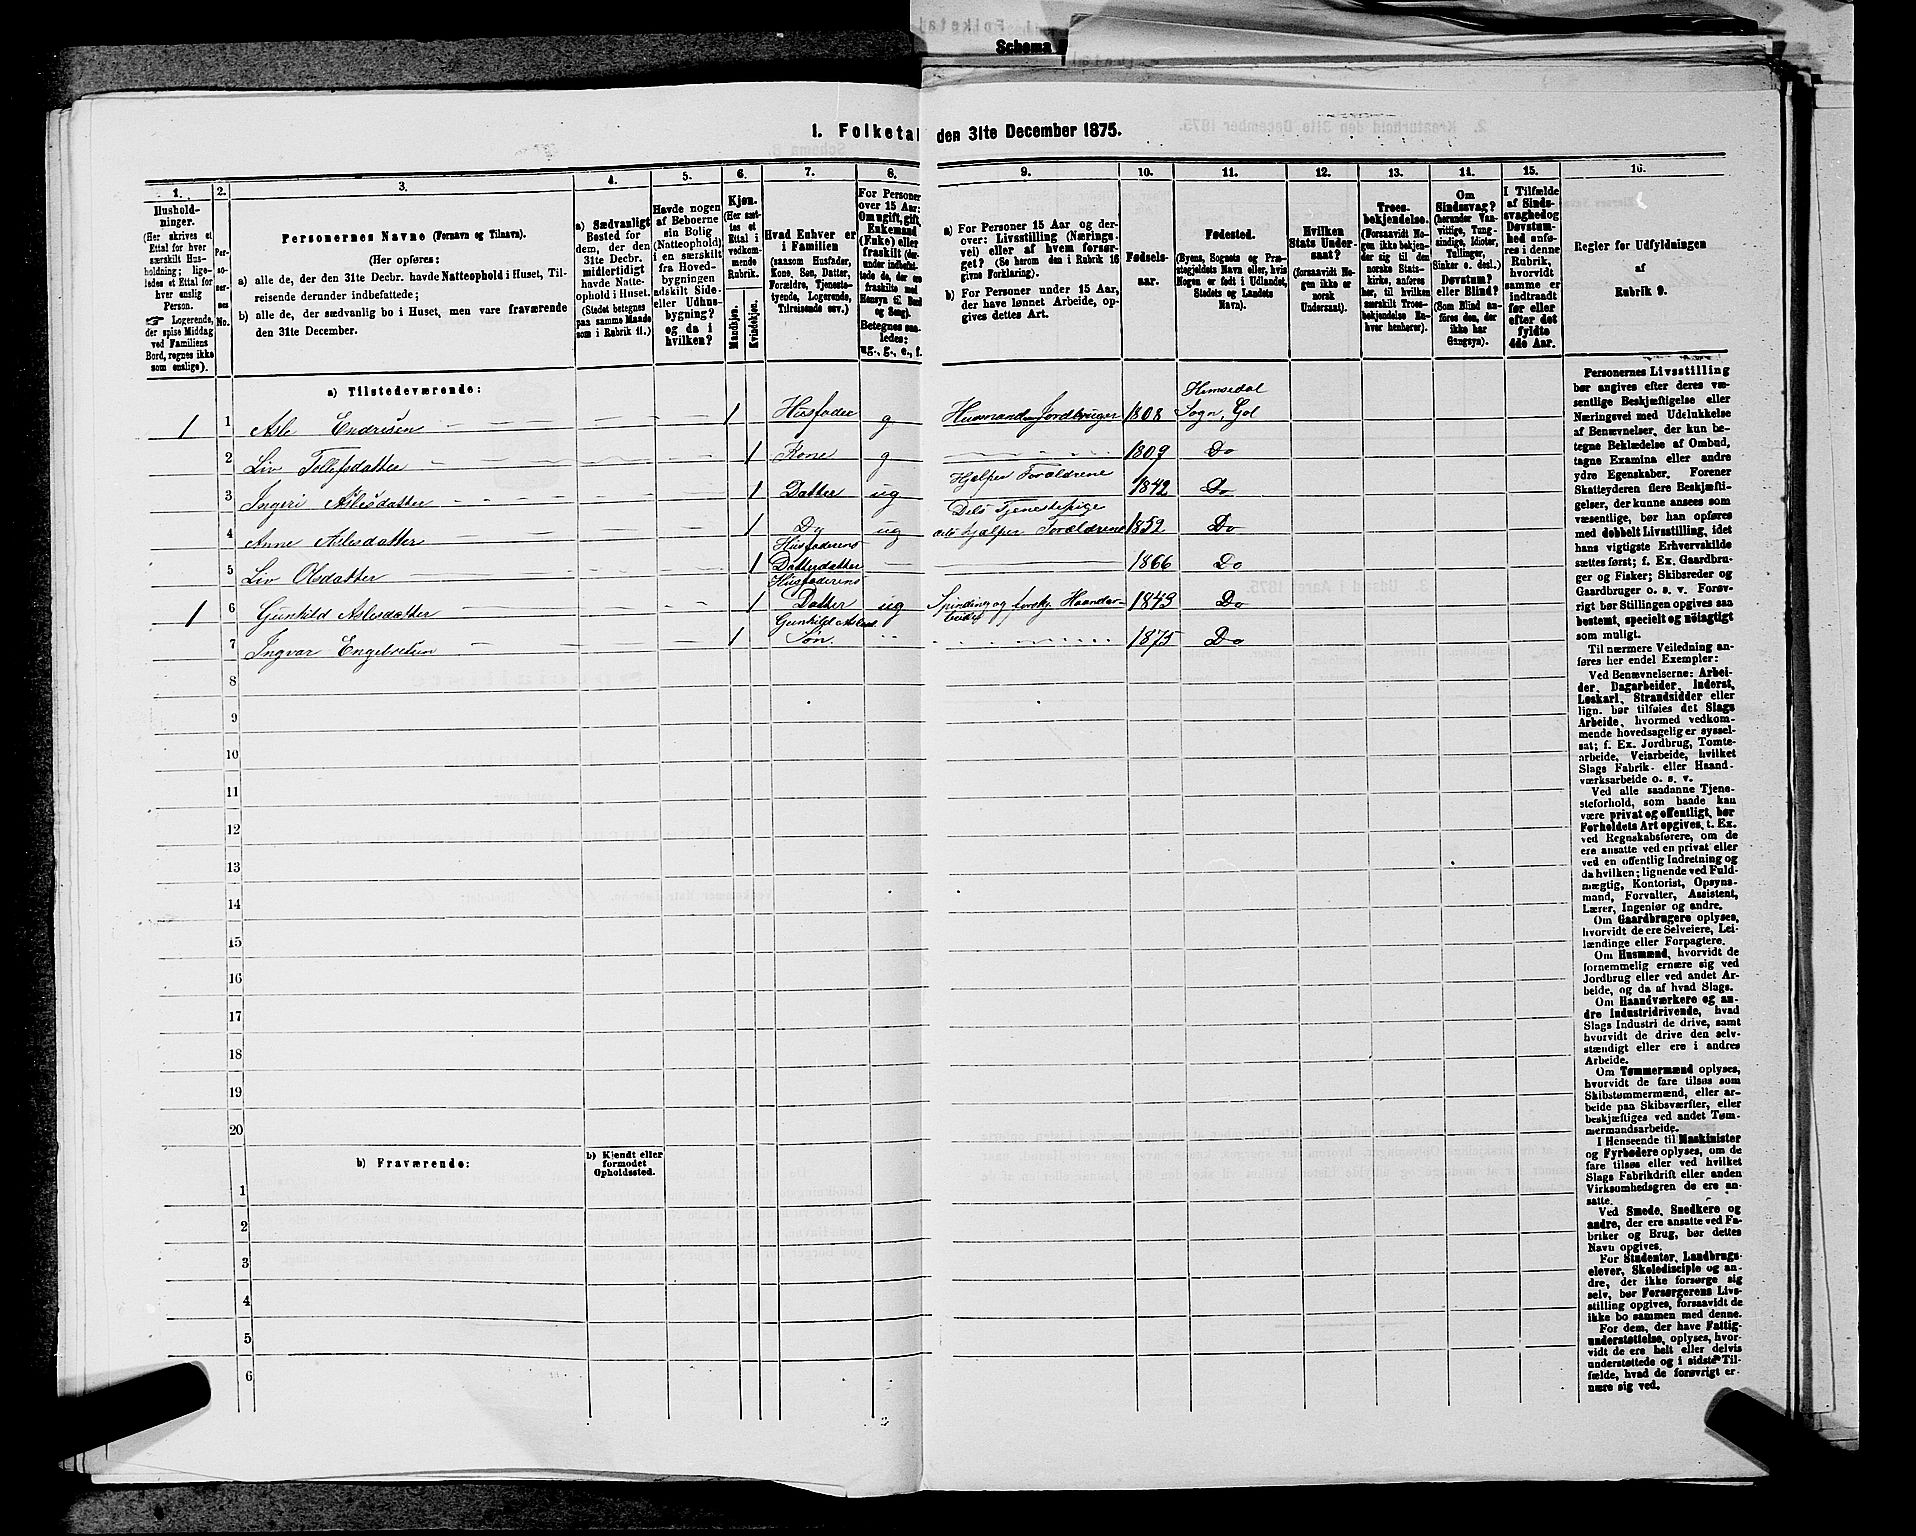 Schema
1. Folketal den 31te December 1875.
1.
Hushold-
ninger.
(Her skrives et
Ettal for hver
særskilt Hus-
holdning; lige-
ledes et Ettal for
hver enslig
Person.
☞ Logerende,
der spise Middag
ved Familiens
Bord, regnes ikke
som enslige).
2.
Per-
so-
ner-
nes
No.
3.
Personernes Navne (Fornavn og Tilnavn).
(Her opføres:
a) alle de, der den 31te Decbr. havde Natteophold i Huset, Til-
reisende derunder indbefattede;
b) alle de, der sædvanlig bo i Huset, men vare fraværende
den 31te December.
4.
a) Sædvanligt
Bosted for
dem, der den
31te Decbr.
midlertidigt
havde Natte-
ophold i Huset.
(Stedet betegnes
paa samme Maade
som i Rubrik 11.)
5.
Havde nogen
af Beboerne
sin Bolig
(Natteophold)
i en særskilt
fra Hoved-
bygningen
adskilt Side-
eller Udhus-
bygning?
og da i
hvilken?
6.
Kjøn.
(Her sæt-
tes et
Ettal i
vedkom-
mende
Rubrik.
Mandkjøn.
Kvindekjøn.
7.
Hvad Enhver er
i Familien
(saasom Husfader,
Kone, Søn, Datter,
Forældre, Tjeneste-
tyende, Logerende,
Tilreisende osv.)
8.
For Personer
over 15 Aar:
Om ugift, gift,
Enkemand
(Enke) eller
fraskilt (der-
under indbefat-
tede de, der ere
fraskilte med
Hensyn til Bord
og Seng).
Betegnes saa-
ledes:
ug., g., e., f.
9.
a) For Personer 15 Aar og der-
over: Livsstilling (Nærings-
vei) eller af hvem forsør-
get? (Se herom den i Rubrik 16
givne Forklaring).
b) For Personer under 15 Aar,
der have lønnet Arbeide, op-
gives dettes Art.
10.
Fødsels-
aar.
11.
Fødested.
(Byens, Sognets og Præ-
stegjeldets Navn eller, hvis
Nogen er født i Udlandet,
Stedets og Landets
Navn).
12.
Hvilken
Stats Under-
saat?
(forsaavidt No-
gen ikke er
norsk
Undersaat).
13.
Troes-
bekjendelse.
(Forsaavidt No-
gen ikke bekjen-
der sig til den
norske Stats-
kirke, anføres
her, til hvilken
særskilt Troes-
bekjendelse En-
hver henhører).
14.
Om
Sindssvag?
(herunder Van-
vittige, Tung-
sindige, Idioter,
Tullinger,
Sinker o. desl.)
Døvstum?
eller Blind?
(Som Blind an-
føres den, der
ikke har
Gangsyn).
15.
I Tilfælde
af Sinds-
svaghed og
Døvstum-
hed anfø-
res i denne
Rubrik,
hvorvidt
samme er
indtraadt
før eller
efter det
fyldte
4de Aar.
16.
Regler for Udfyldningen
af
Rubrik 9.
a) Tilstedeværende:
1 1 Asle Endresen 1 Husfader g Husmand m Jordbruger 1808 Hemsedal Sogn, Gol
2 Liv Tollefsdatter 1 Kone g 1809 Do
3 Ingeri Aslesdatter 1 Datter ug Hjelper Forældrene 1842 Do
4 Anne Aslesdatter 1 Do ug Dels Tjenestepige dels hjelper Forældrene 1852 Do
5 Liv Olsdatter 1 Husfaderens Datterdatter 1866 Do
1 6 Gunhild Aslesdatter 1 Husfaderens Datter ug Spinding og forskj. Haandarbeide 1843 Do
7 Ingvar Engebretsen 1 Gunhild Aslesd. Søn. 1875 Do
8
9
10
11
12
13
14
15
16
17
18
19
20
b) Fraværende:
b) Kjendt eller
formodet
Opholdssted.
1
2
3
4
5
6
Personernes Livsstilling
bør angives efter deres væ-
sentlige Beskjæftigelse eller
Næringsvei med Udelukkelse
af Benævnelser, der kun be-
tegne Beklædelse af Ombud,
tagne Examina eller andre
ydre Egenskaber. Forener
Skatteyderen flere Beskjæfti-
gelser, der kunne ansees som
væsentlige, bør han opføres
med dobbelt Livsstilling, idet
hans vigtigste Erhvervskilde
sættes først; f. Ex. Gaardbru-
ger og Fisker; Skibsreder og
Gaardbruger o. s. v. Forøv-
rigt bør Stillingen opgives saa
bestemt, specielt og nøiagtigt
som muligt.
Til nærmere Veiledning an-
føres her endel Exempler:
Ved Benævnelserne: Arbei-
der, Dagarbeider, Inderst,
Løskarl, Strandsidder eller
lign. bør tilføies det Slags
Arbeide, hvormed vedkom-
mende hovedsagelig er syssel-
sat; f. Ex. Jordbrug, Tomte-
arbeide, Veiarbeide, hvilket
Slags Fabrik- eller Haand-
værksarbeide o. s. v.
Ved alle saadanne Tjene-
steforhold, som baade kan
være privat og offentligt, bør
Forholdets Art opgives, t. Ex.
ved Regnskabsførere, om de
ere ansatte ved en privat eller
ved en offentlig Indretning og
da hvilken; lignende ved Fuld-
mægtig, Kontorist, Opsyns-
mand, Forvalter, Assistent,
Lærer, Ingeniør og andre.
Om Gaardbrugere oplyses,
hvorvidt de ere Selveiere, Lei-
lændinge eller Forpagtere.
Om Husmænd, hvorvidt de
fornemmelig ernære sig ved
Jordbrug eller ved andet Ar-
beide, og da af hvad Slags.
Om Haandværkere og an-
dre Industridrivende, hvad
Slags Industri de drive, samt
hvorvidt de drive den selv-
stændigt eller ere i andres
Arbeide.
Om Tømmermænd oplyses,
hvorvidt de fare tilsøs som
Skibstømmermænd, eller ar-
beide paa Skibsværfter, eller
beskjæftiges ved andet Tøm-
mermandsarbeide.
I Henseende til Maskinister
og Fyrbødere oplyses, om de
fare tilsøs eller ved hvilket
Slags Fabrikdrift eller anden
Virksomhedsgren de ere an-
satte.
Ved Smede, Snedkere og
andre, der ere ansatte ved Fa-
briker og Brug, bør dettes
Navn opgives.
For Studenter, Landbrugs-
elever, Skoledisciple og an-
dre, der ikke forsørge sig
selv, bør Forsørgerens Livs-
stilling opgives, forsaavidt de
ikke bo sammen med denne.
For dem, der have Fattig-
understøttelse, oplyses, hvor-
vidt de ere helt eller delvis
understøttede og i sidste Til-
fælde, hvad de forøvrigt er-
nære sig ved.